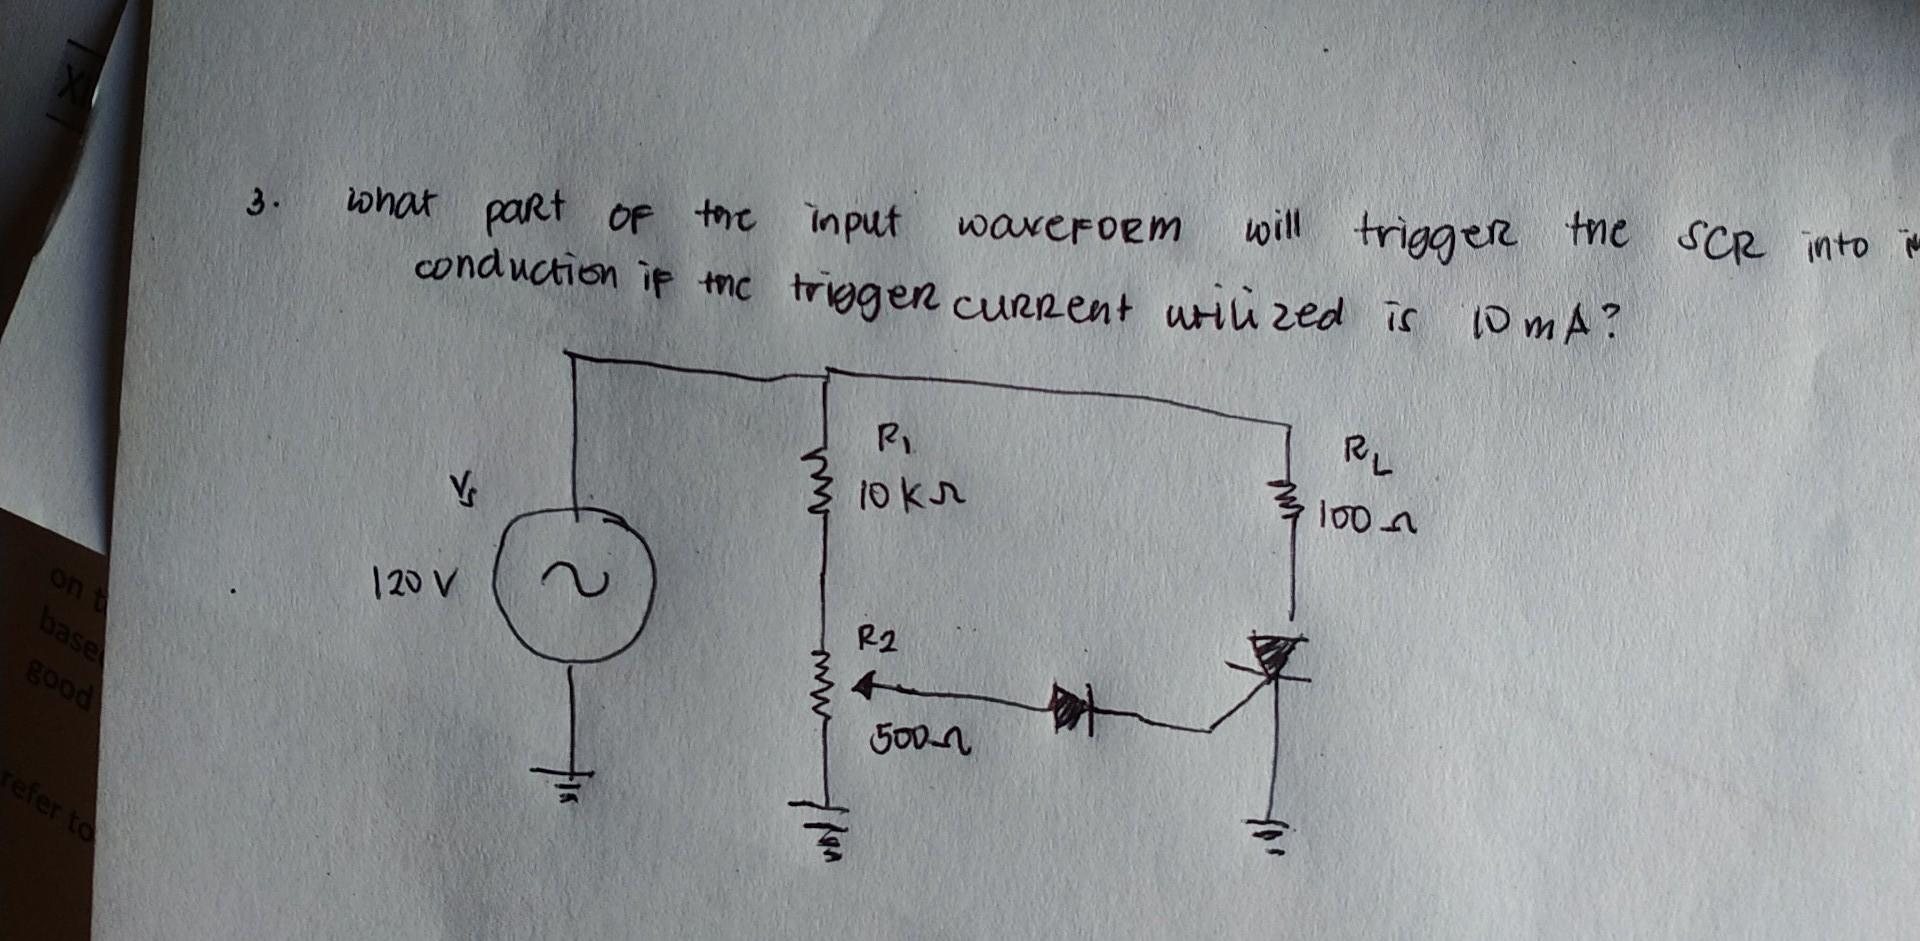 3. What part of the input waveform will trigger the SCR into
conduction if the trigger current utilized is 10 mA?
R1
10 kΩ
RL
100 Ω
Vs
120 V
R2
500Ω
on t
base
good
refer to